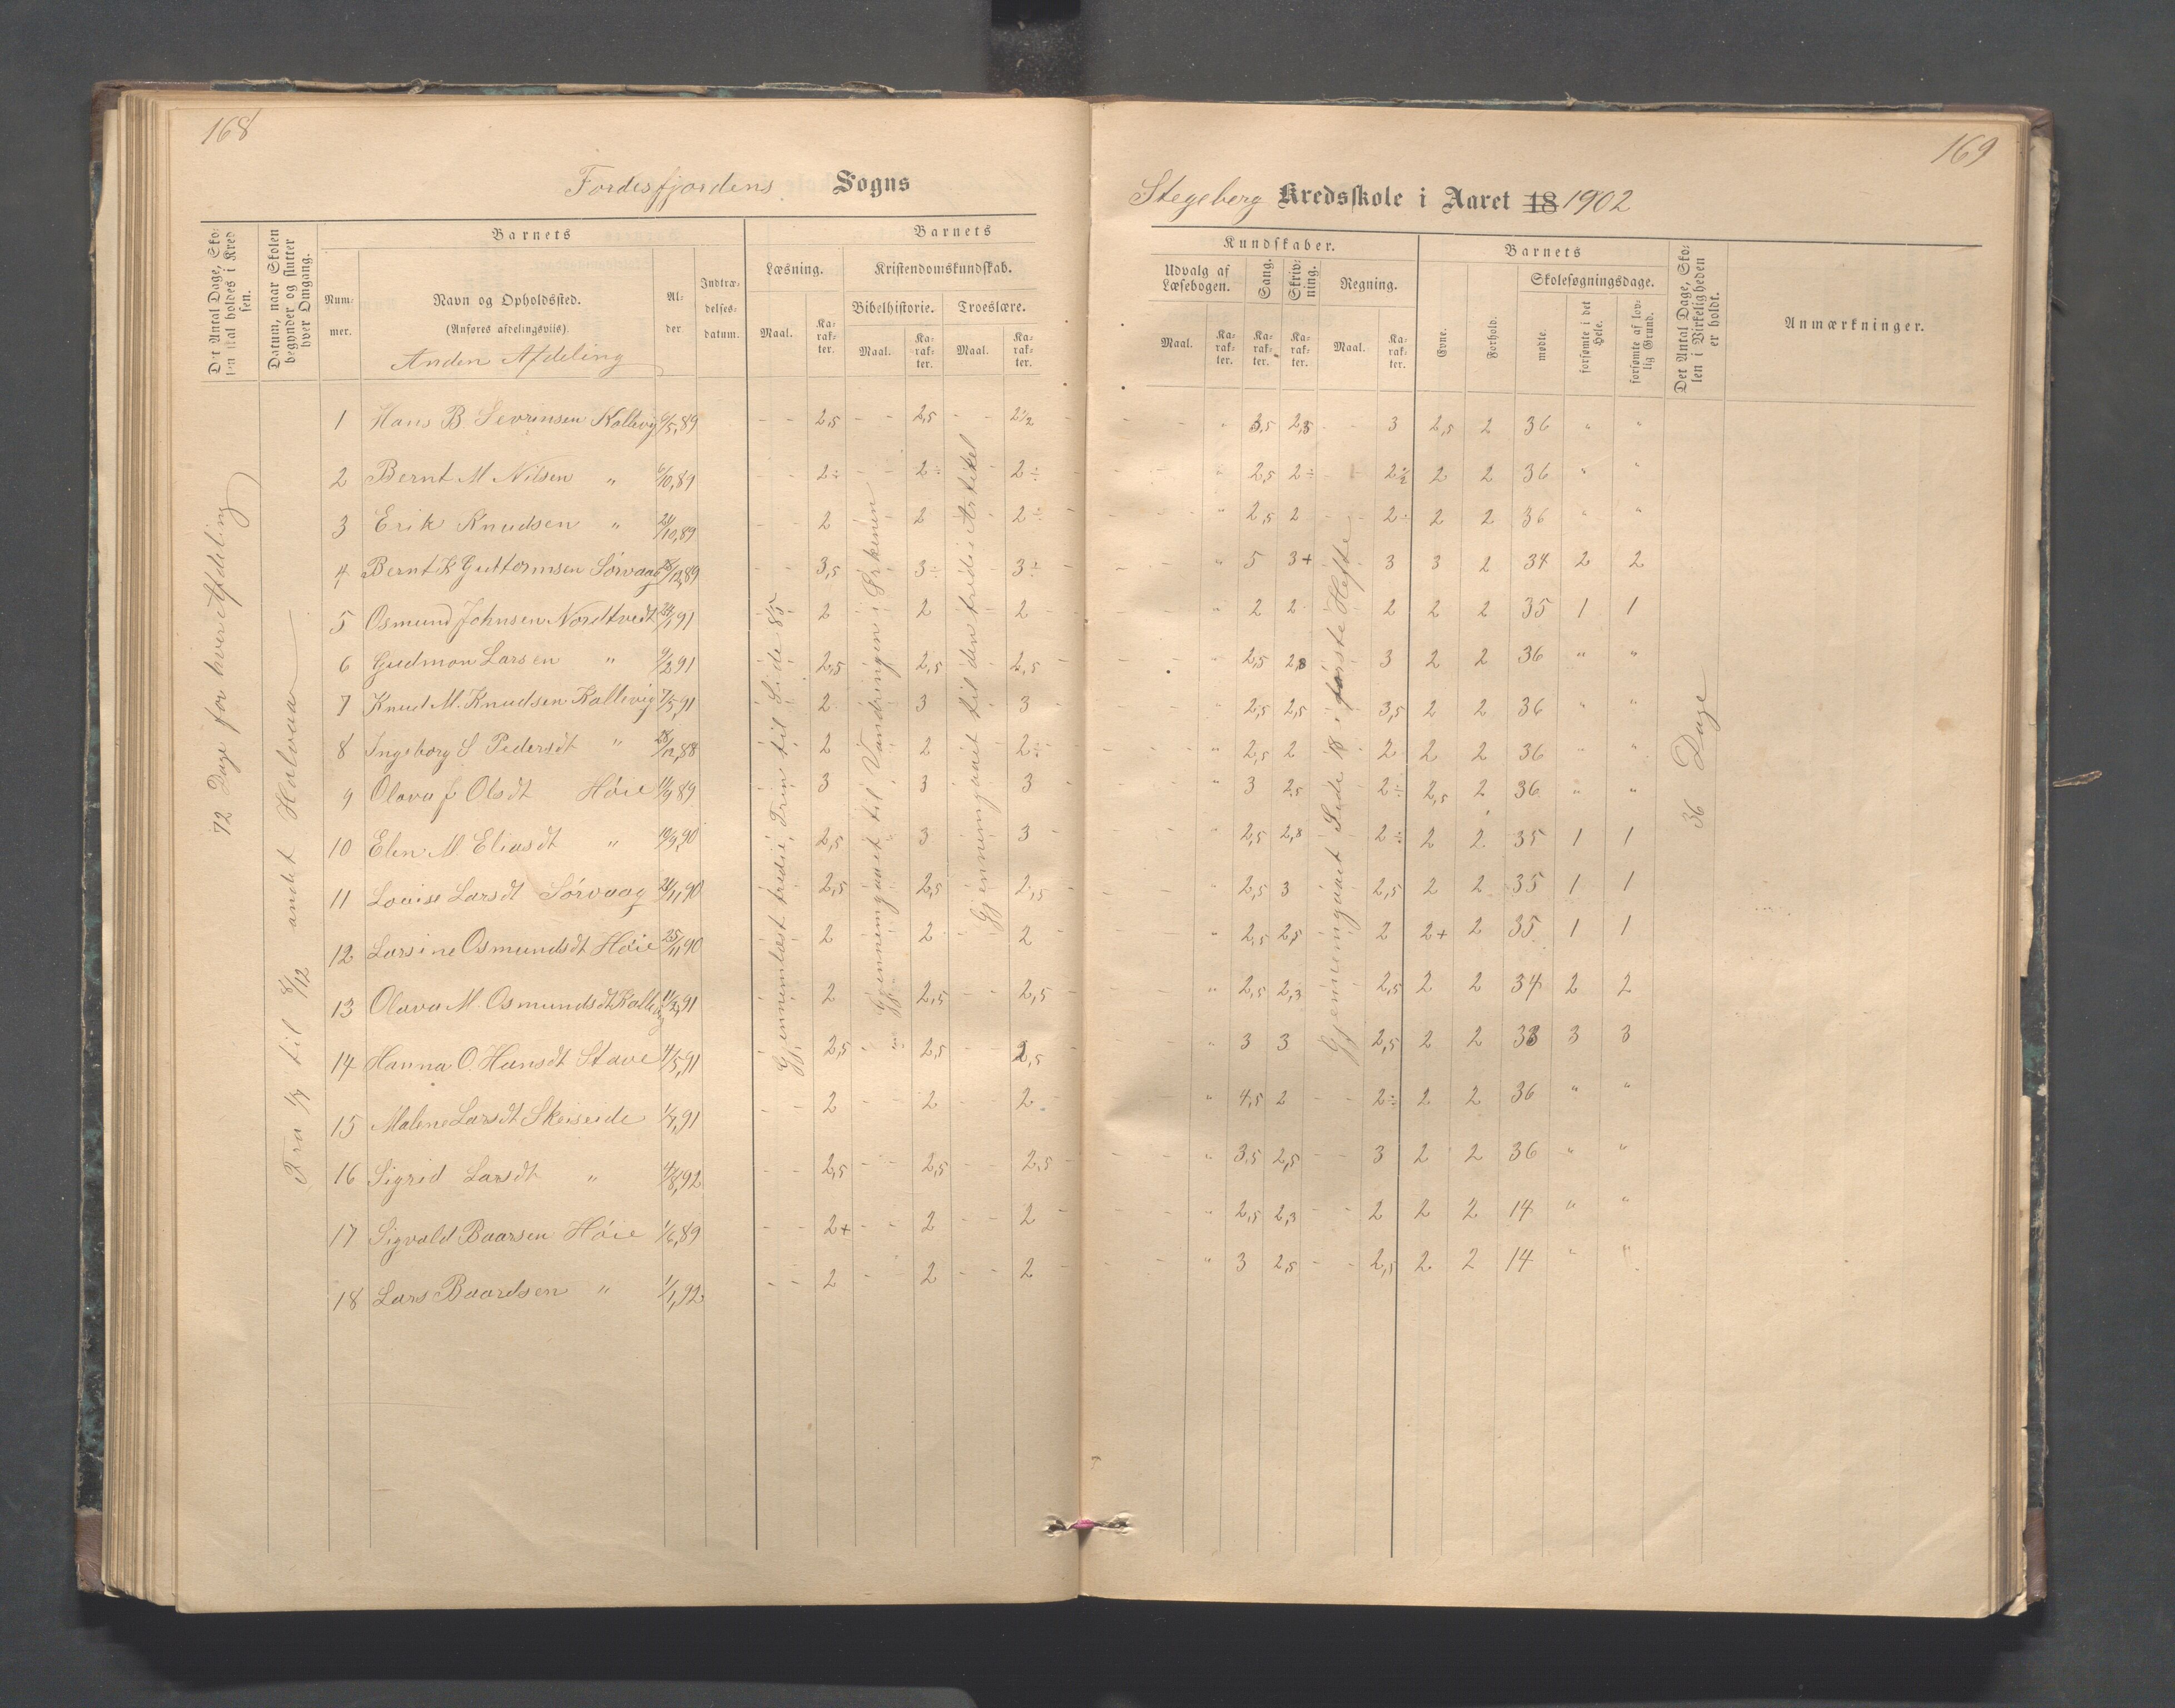 168
Fordesfjordens Sogns
Det Antal Dage, Sko-
len skal holdes i Kred
sen.
Datum, naar Skolen
begynder og slutter
hver Omgang.
Barnets
Barnets
Num-
mer.
Navn og Opholdssted.
(Anføres afdelingsviis)
Anden Afdeling
Al-
der
Indtræ-
delses-
datum.
Læsning.
Kristendomskundskab.
Bibelhistorie. Troeslære.
Maal. Ka-
rak-
ter. Maal. Ka-
rak-
ter. Maal. Ka-
rak-
ter.
72 Dage for hver Afdeling
Fra 1/7 til 8/12 andet Halvaar
Gjennemlæst tredie Trin til Side 85
Gjennemgaaet til Vandringen i Ørkenen
Gjennemgaaet til den tredie Artikel
1 Hans B. Sevrinsen Kallevig 6/5,89 - - 2,5 - - 2,5 - - 2 1/2
2 Bernt M Nilsen " 6/10,89 - - 2÷ - - 2÷ - 2÷
3 Erik Knudsen " 24/10,89 - - 2 2 2÷
4 Bernt K Guttormsen Sørvaag 28/12,89 - - 3,5 3÷ 3÷
5 Osmund Johnsen Nordtvedt 24/1,91 2 2 2
6 Gudmon Larsen " 9/2,91 2,5 2,5 2,5
7 Knud M. Knudsen Kallevig 7/5,91 2 3 3
8 Ingeborg S Pedersdt " 28/12,88 2 2 2÷
9 Olava J Olsdt Høie 11/9,89 3 3 3
10 Elen M. Eliasdt " 19/9,90 2,5 3 3
11 Lovise Larsdt Sørvaag 21/11,90 2,5 2,5 2,5
12 Larsine Osmundsdt Høie 25/11,90 2 2 2
13 Olava M. Osmundsdt Kallevig 11/2,91 2 2,5 2,5
14 Hanna O. Hansdt Stave 4/5,91 2,5 2,5 2,5
15 Malene Larsdt Skeiseide 1/7,91 - - 2 - - 2 - - 2
16 Sigrid Larsdt " 4/8,92 - - 2,5 - - 2,5 - - 2,5
17 Sigvald Baarsen Høie 1/6,89 - - 2+ - - 2 - - 2
18 Lars Baardsen " 1/1,92 - - 2 - - 2 - - 2
169
Stegeberg Kredsskole i Aaret 18 1902
Kundskaber.
Barnets
Udvalg af
Læsebogen.
Sang.
Skriv-
ning.
Regning.
Evne.
Forhold.
Skolesøgningsdage.
mødte.
forsømte i det
Hele.
forsømte af lov-
lig Grund.
Det Antal Dage, Sko-
len i Virkeligheden
er holdt.
Anmærkninger.
Maal. Ka-
rak-
ter. Ka-
rak-
ter. Ka-
rak-
ter. Maal. Ka-
rak-
ter.
Gjennemgaaet Side 18 i første Hefte
36 Dage
" 3,5 2,5 - - 3 2,5 2 36 " "
" 2,5 2÷ - 2 1/2 2 2 36 " "
" 2,5 2 2÷ 2 2 36 " "
" 5 3+ 3 3 2 34 2 2
" 2 2 2 2 2 35 1 1
" 2,5 2,8 3 2 2 36 " "
" 2,5 2,5 3,5 2 2 36 " "
" 2,5 2 2 2 2 36 " "
" 3 2,5 2÷ 2,5 2 36 " "
" 2,5 2,8 2÷ 2 2 35 1 1
" 2,5 3 2,5 2 2 35 1 1
" 2,5 2,5 2 2+ 2 35 1 1
" 2,5 2,3 2,5 2 2 34 2 2
" 3 3 2,5 2 2 33 3 3
" 4,5 2 - - 2÷ 2 2 36 " "
" 3,5 2,5 - - 3 2 2 36 " "
" 2,5 2,3 - - 2 2 2 14 " "
" 3 2,5 - - 2,5 2 2 14 " "